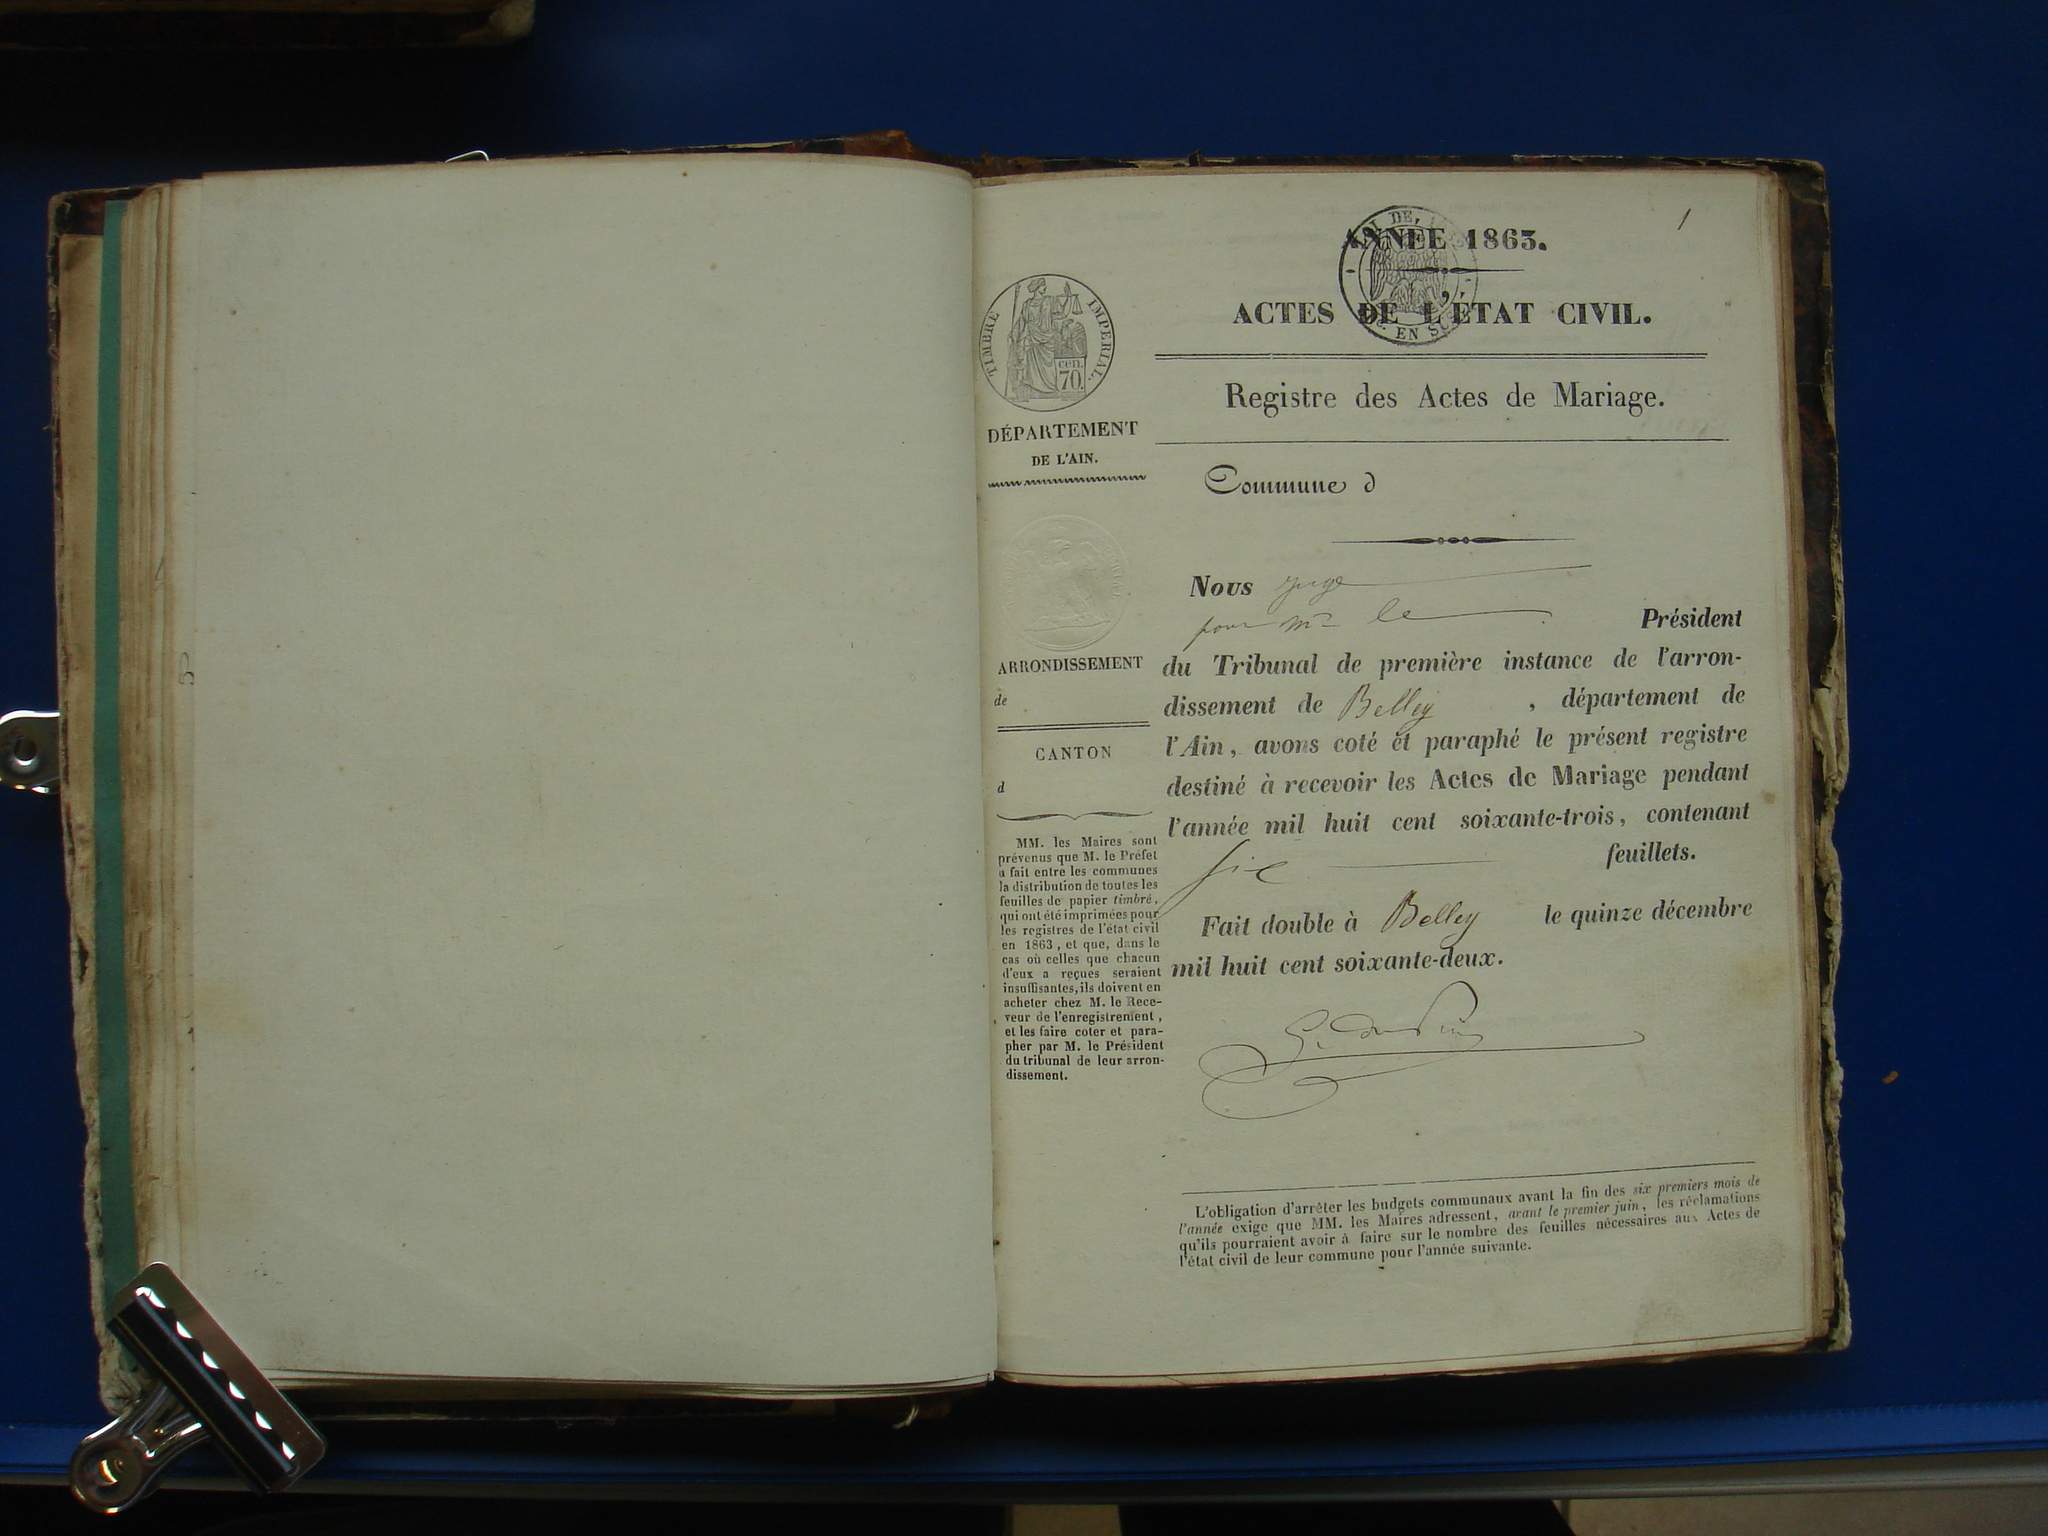 1
ANNÉE 1863.
ACTES DE L'ÉTAT CIVIL.
Registre des Actes de Mariage.
Commune d
Nous juge
pour Mr le Président
du Tribunal de première instance de l'arron-
dissement de Belley , département de
l'Ain, avons coté et paraphé le présent registre
destiné à recevoir les Actes de Mariage pendant
l'année mil huit cent soixante-trois, contenant
six feuillets.
Fait double à Belley le quinze décembre
mil huit cent soixante-deux.
TIMBRE IMPÉRIAL.
cen.
70.
DÉPARTEMENT
DE L'AIN.
ARRONDISSEMENT
de
CANTON
d
MM. les Maires sont
prévenus que M. le Préfet
a fait entre les communes
la distribution de toutes les
feuilles de papier timbré,
qui ont été imprimées pour
les registres de l'état civil
en 1863, et que, dans le
cas où celles que chacun
d'eux a reçues seraient
insuffisantes, ils doivent en
acheter chez M. le Rece-
veur de l'enregistrement,
et les faire coter et para-
pher par M. le Président
du tribunal de leur arron-
dissement.
L'obligation d'arrêter les budgets communaux avant la fin des six premiers mois de
l'année exige que MM. les Maires adressent, avant le premier juin, les réclamations
qu'ils pourraient avoir à faire sur le nombre des feuilles nécessaires aux Actes de
l'état civil de leur commune pour l'année suivante.